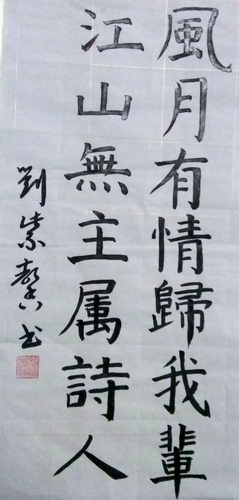 風月有情歸我輩
江山無主属詩人
劉紫馨书